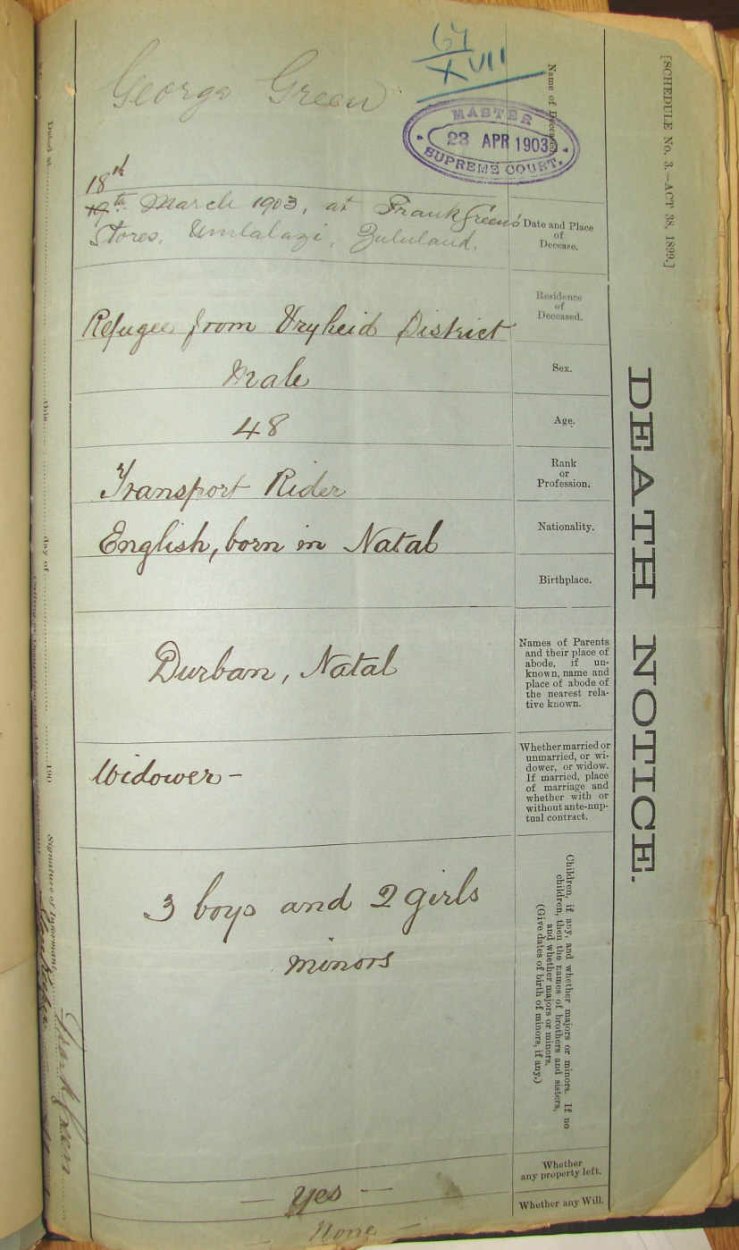 [SCHEDULE No. 3.—ACT 38, 1899.]
DEATH NOTICE.
67
XVII
MASTER
23 APR 1903
SUPREME COURT.
Name of Deceased.
George Green
Date and Place
of
Decease.
18th
19th March 1903, at Frank Green's
Stores, Umlalazi, Zululand.
Residence
of
Deceased.
Refugee from Vryheid District
Sex.
Male
Age.
48
Rank
or
Profession.
Transport Rider
Nationality.
English, born in Natal
Birthplace.
Names of Parents
and their place of
abode, if un-
known, name and
place of abode of
the nearest rela-
tive known.
Durban, Natal
Whether married or
unmarried, or wi-
dower, or widow.
If married, place
of marriage and
whether with or
without ante-nup-
tual contract.
Widower –
Children, if any, and whether majors or minors. If no
children, then the names of brothers and sisters,
and whether majors or minors.
(Give dates of birth of minors, if any.)
3 boys and 2 girls
minors
Whether
any property left.
— Yes —
Whether any Will.
None —
Dated at
this
day of
190
Signature of Informant,
Frank Green